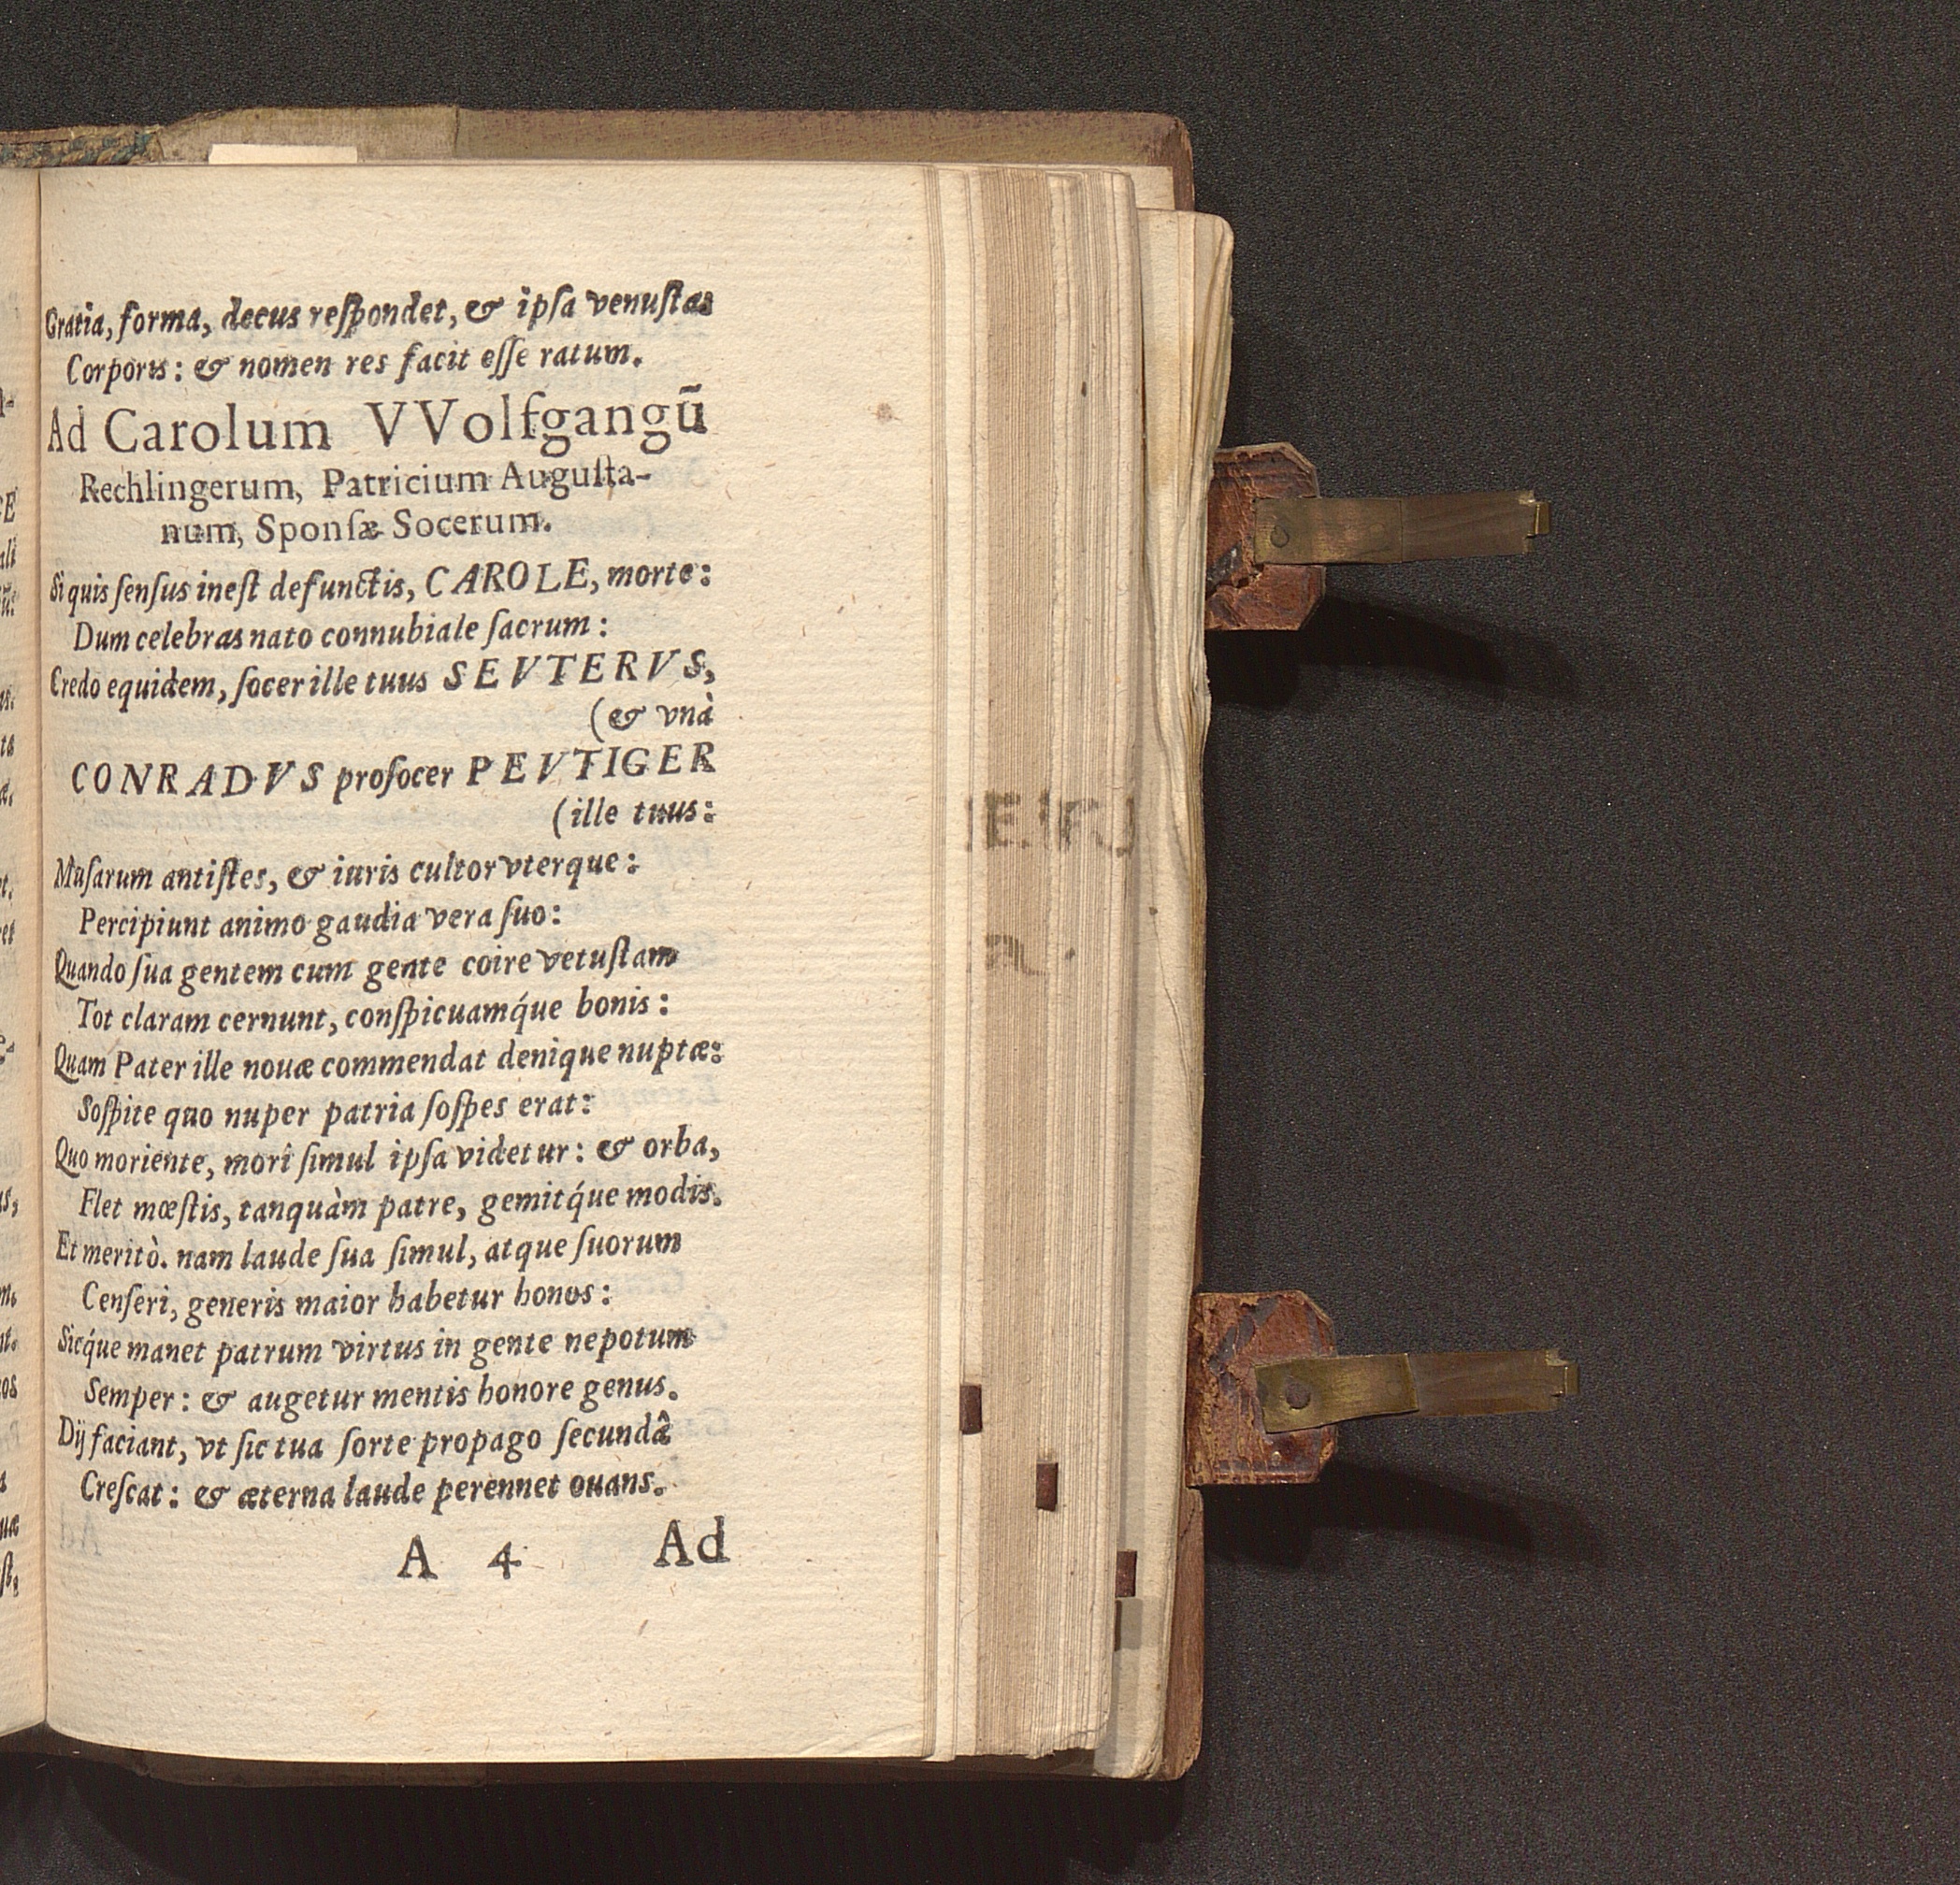 Gratia, forma, decus reſpondet, & ipſa venuſtas
Corporis: & nomen res facit eſſe ratum.
Ad Carolum VVolfgangū
Rechlingerum, Patricium Auguſta-
num, Sponſæ Socerum.
Si quis ſenſus ineſt defunctis, CAROLE, morte:
Dum celebras nato connubiale ſacrum:
Credo equidem, ſocer ille tuus SEVTERVS,
(& vnà
CONRADVS proſocer PEVTIGER
(ille tuus:
Muſarum antiſtes, & iuris cultor vterque:
Percipiunt animo gaudia vera ſuo:
Quando ſua gentem cum gente coire vetuſtam
Tot claram cernunt, conſpicuamq́ue bonis:
Quam Pater ille nouæ commendat denique nuptæ:
Soſpite quo nuper patria ſoſpes erat:
Quo moriente, mori ſimul ipſa videtur: & orba,
Flet mœſtis, tanquàm patre, gemitq́ue modis.
Et meritò. nam laude ſua ſimul, atque ſuorum
Cenſeri, generis maior habetur honos:
Sicq́ue manet patrum virtus in gente nepotum
Semper: & augetur mentis honore genus.
Dij faciant, vt ſic tua ſorte propago ſecundâ
Creſcat: & æterna laude perennet ouans.
A 4 Ad